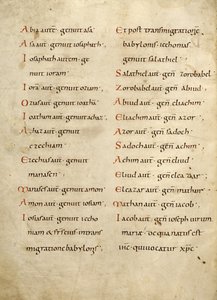 Abia aut̄ · genuit asa
Asa aut̄ · genuit iosaphath ·
Iosaphath autem · ge
nuit ioram ·
Iora aut̄ · genuit oziam ·
Ozias aut̄ · genuit ioatha ·
Ioatham aut̄ · genuit achaz ·
Achaz aut̄ · genuit
ezechiam ·
Ezechias aut̄ · genuit
manassen ·
Manases aut̄ · genuit amon ·
Amon aut̄ · genuit iosiam ·
Iosias aut̄ · genuit iecho
niam & fr̄s eius · in trans
migratione babylonis ·
Et post transmigratione
babylonis · iechonias
genuit salathiel ·
Salathiel aut̄ · gen̄ zorobabel
Zorobabel aut̄ · gen̄ abiud
Abiud aut̄ · gen̄ eliachim ·
Eliachim aut̄ · gen̄ azor ·
Azor aut̄ · gen̄ sadoch ·
Sadoch aut̄ · gen̄ achim ·
Achim aut̄ · gen̄ eliud ·
Eliud aut̄ · gen̄ eleazar ·
Eleazar aut̄ · gen̄ mathan ·
Mathan aut̄ · gen̄ iacob ·
Iacob aut̄ · gen̄ ioseph virum
mariae · de qua natus est
ih̄c · qui vocatur xp̄c ·